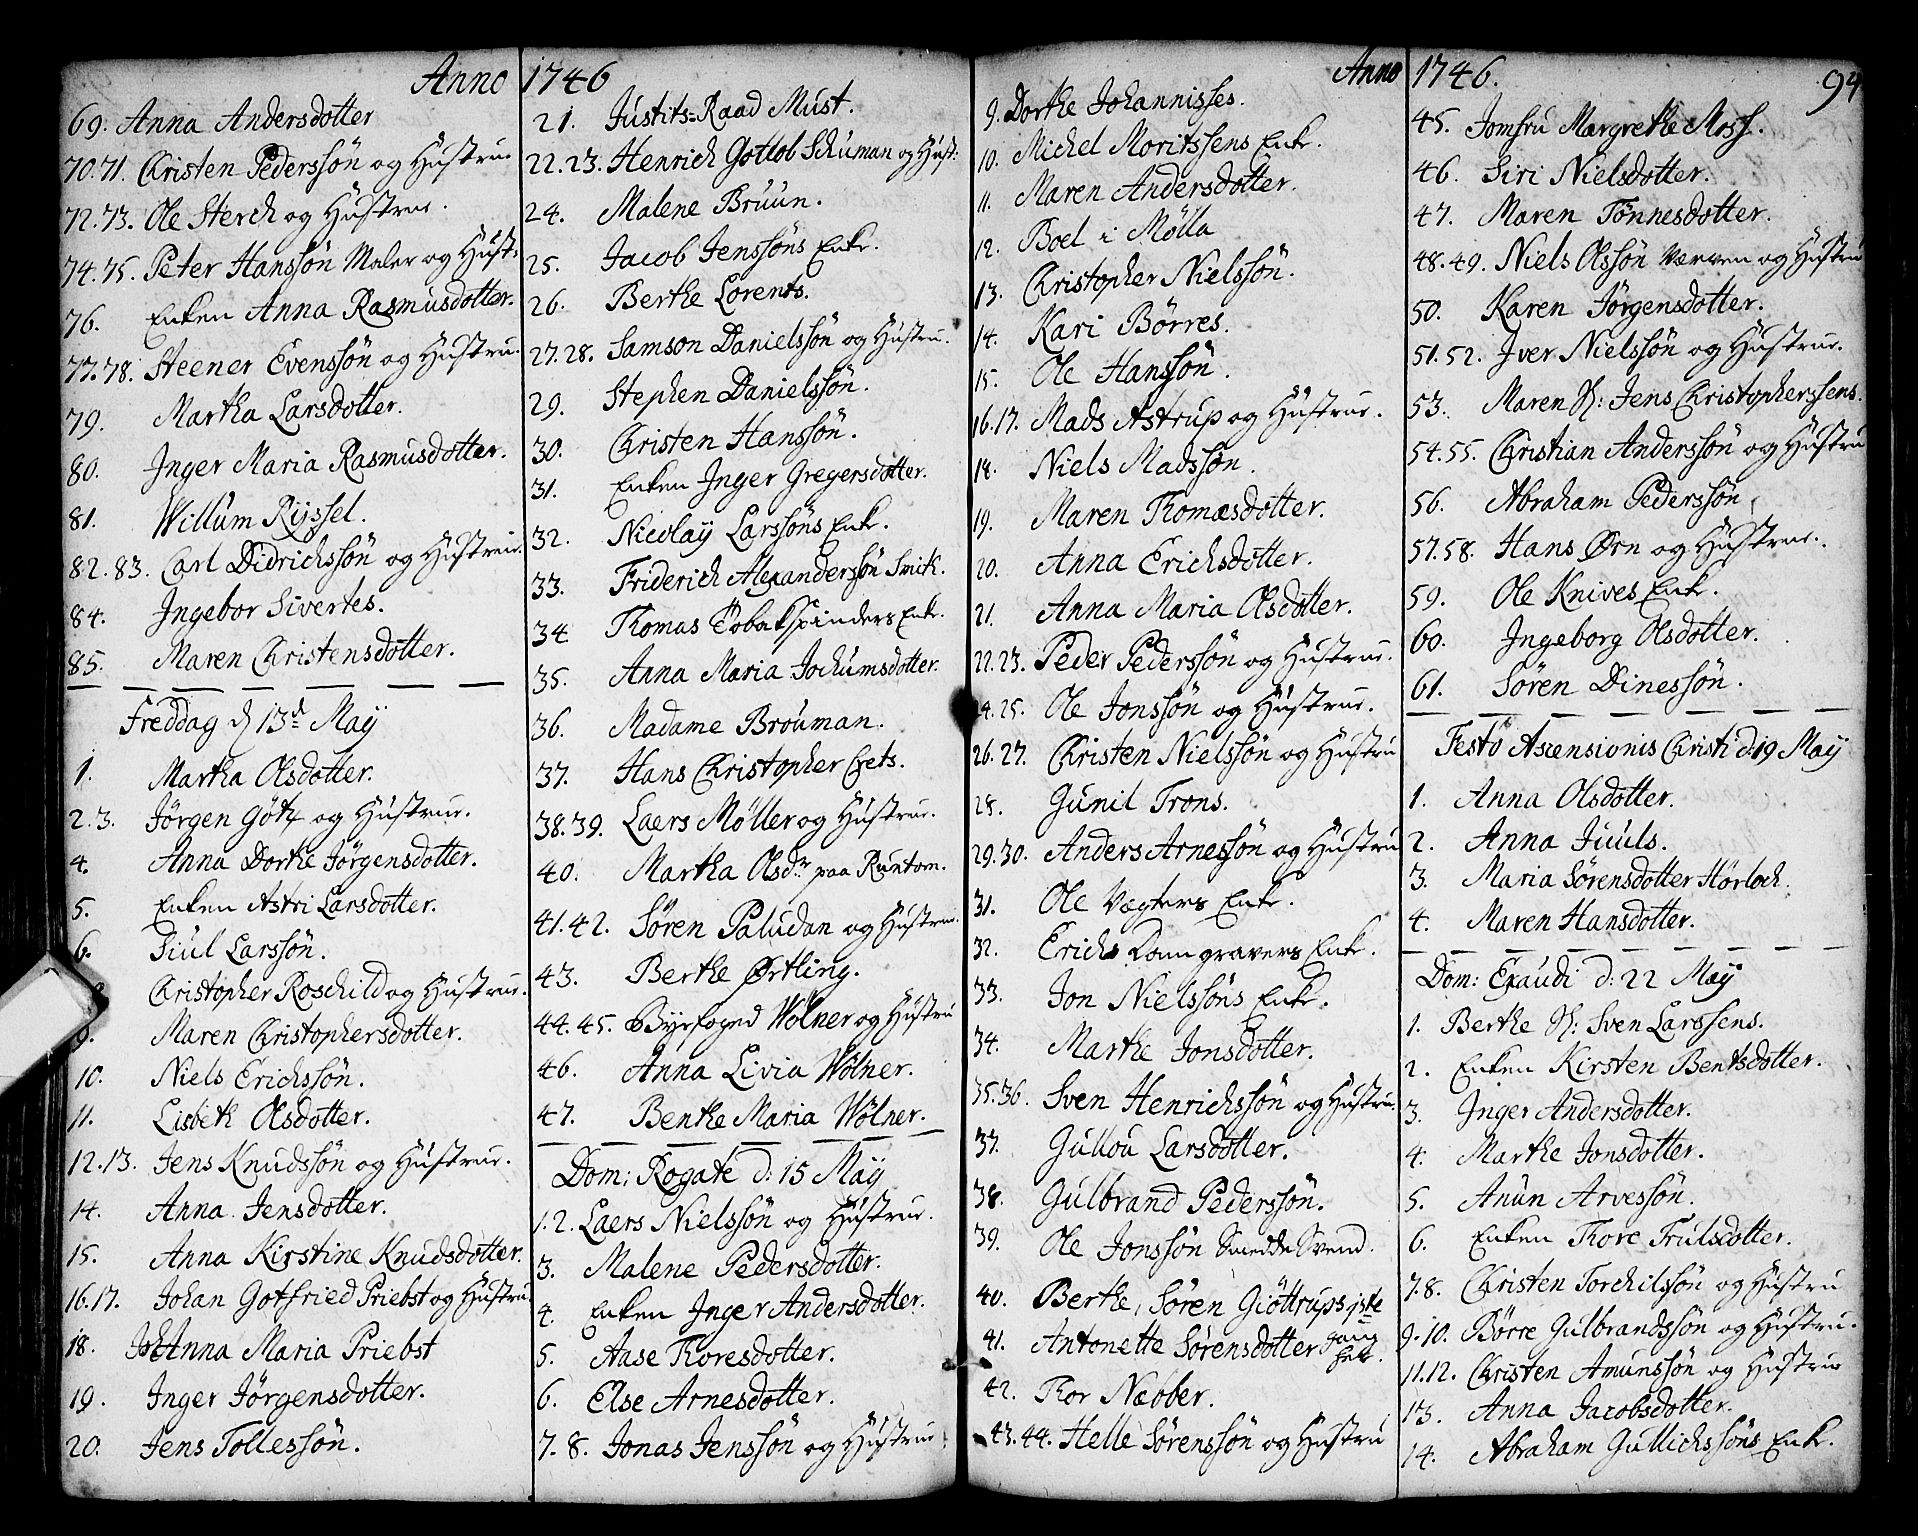 Anno 1746
69. Anna Andersdotter
70.71. Christen Pederssön og Hustrue
72.73. Ole Sterch og Hustrue.
74.75. Peter Hanssön Maler og Hust:
76. Enken Anna Rasmusdotter.
77.78. Steener Evenssön og Hustru.
79. Martha Larsdotter.
80. Inger Maria Rasmusdotter.
81. Willum Ryssel.
82.83. Carl Didrichssön og Hustrue.
84. Ingebor Sivertes.
85. Maren Christensdotter.
Freddag d 13de May
1. Martha Olsdotter.
2.3. Jörgen Götz og Hustrue.
4. Anna Dorthe Jörgensdotter.
5. Enken Astri Larsdotter.
6. Siul Larssön.
Christopher Roschild og Hustrue.
9. Maren Christophersdotter.
10. Niels Erichssön.
11. Lisbeth Olsdotter.
12.13. Jens Knudssön og Hustrue.
14. Anna Jensdotter.
15. Anna Kirstine Knudsdotter.
16.17. Johan Gotfried Priebst og Hustru
18. Anna Maria Priebst
19. Inger Jörgensdotter.
20. Jens Tollessön.
21. Justits=Raad Must.
22.23. Henrich Gottlob Schuman og Hust:
24. Malene Bruun.
25. Jacob Jenssöns Enke.
26. Berthe Lorents.
27.28. Samson Danielssön og Hustru.
29. Stephen Danielssön.
30. Christen Hanssön.
31. Enken Inger Gregersdotter.
32. Nicolay Larssöns Enke.
33. Friderich Alexanderssön Smith.
34 Thomas Tobakspinders Enke.
35. Anna Maria Jochumsdotter.
36. Madame Brouman.
37. Hans Christopher Gets.
38.39. Laers Møller og Hustrue.
40. Martha Olsdr paa Runtom.
41.42. Søren Paludan og Hustrue.
43. Berthe Ørtling.
44.45. Byefoged Wölner og Hustru
46. Anna Livia Wölner.
47. Benthe Maria Wölner.
Dom: Rogate d: 15 May
1.2. Laers Nielssön og Hustrue.
3. Malene Pedersdotter.
4. Enken Inger Andersdotter.
5. Aase Thoresdotter.
6. Else Arnesdotter.
7.8. Jonas Jenssön og Hustrue
Anno 1746. 94
9. Dorthe Johannisses.
10. Michel Moritssens Enke.
11. Maren Andersdotter.
12. Boel i Mølla
13. Christopher Nielssön.
14. Kari Børres.
15. Ole Hanssön.
16.17. Mads Astrup og Hustrue.
18. Niels Madssön.
19. Maren Thomæsdotter.
20. Anna Erichsdotter.
21. Anna Maria Olsdotter.
22.23. Peder Pederssön og Hustrue.
24.25. Ole Jonssön og Hustrue.
26.27. Christen Nielssön og Hustru
28. Gunil Trons.
29.30. Anders Arnessön og Hustru
31. Ole Vægters Enke.
32. Erichs Dom gravers Enke.
33. Jon Nielssöns Enke.
34. Marthe Jonsdotter.
35.36. Sven Henrichssön og Hustru.
37. Gullou Larsdotter.
38. Gulbrand Pederssön.
39. Ole Jonssön Smedde Svend.
40. Berthe, Søren Giöttrups 1ste
41. Antonette Sørensdotter gang
42. Thor Næøber.
43.44. Helle Sørenssön og Hustru
45. Jomfru Margrethe Moss.
46. Siri Nielsdotter.
47. Maren Tønnesdotter.
48.49. Niels Olssön Værven og Hustru
50. Karen Jörgensdotter.
51.52. Iver Nielssön og Hustrue.
53. Maren H: Jens Christopherssens.
54.55. Christian Anderssön og Hustru
56. Abraham Pederssön.
57.58. Hans Ørn og Hustrue.
59. Ole Knives Enke.
60. Ingeborg Olsdotter.
61. Søren Dinessön.
Festo Ascensionis Christi d: 19 May
1. Anna Olsdotter.
2. Anna Juuls.
3. Maria Sørensdotter Hörloch.
4. Maren Hansdotter.
Dom: Exaudi d: 22 May
1. Berthe H: Sven Larssens.
2. Enken Kirsten Bentsdotter.
3. Inger Andersdotter.
4. Marthe Jonsdotter.
5. Anun Arvessön.
6. Enken Thore Trulsdotter.
7.8. Christen Torchilssön og Hustru
9.10. Börre Gulbrandssön og Hustru.
11.12. Christen Amunssön og Hustrue
13. Anna Jacobsdotter.
14. Abraham Gullichssöns Enke.